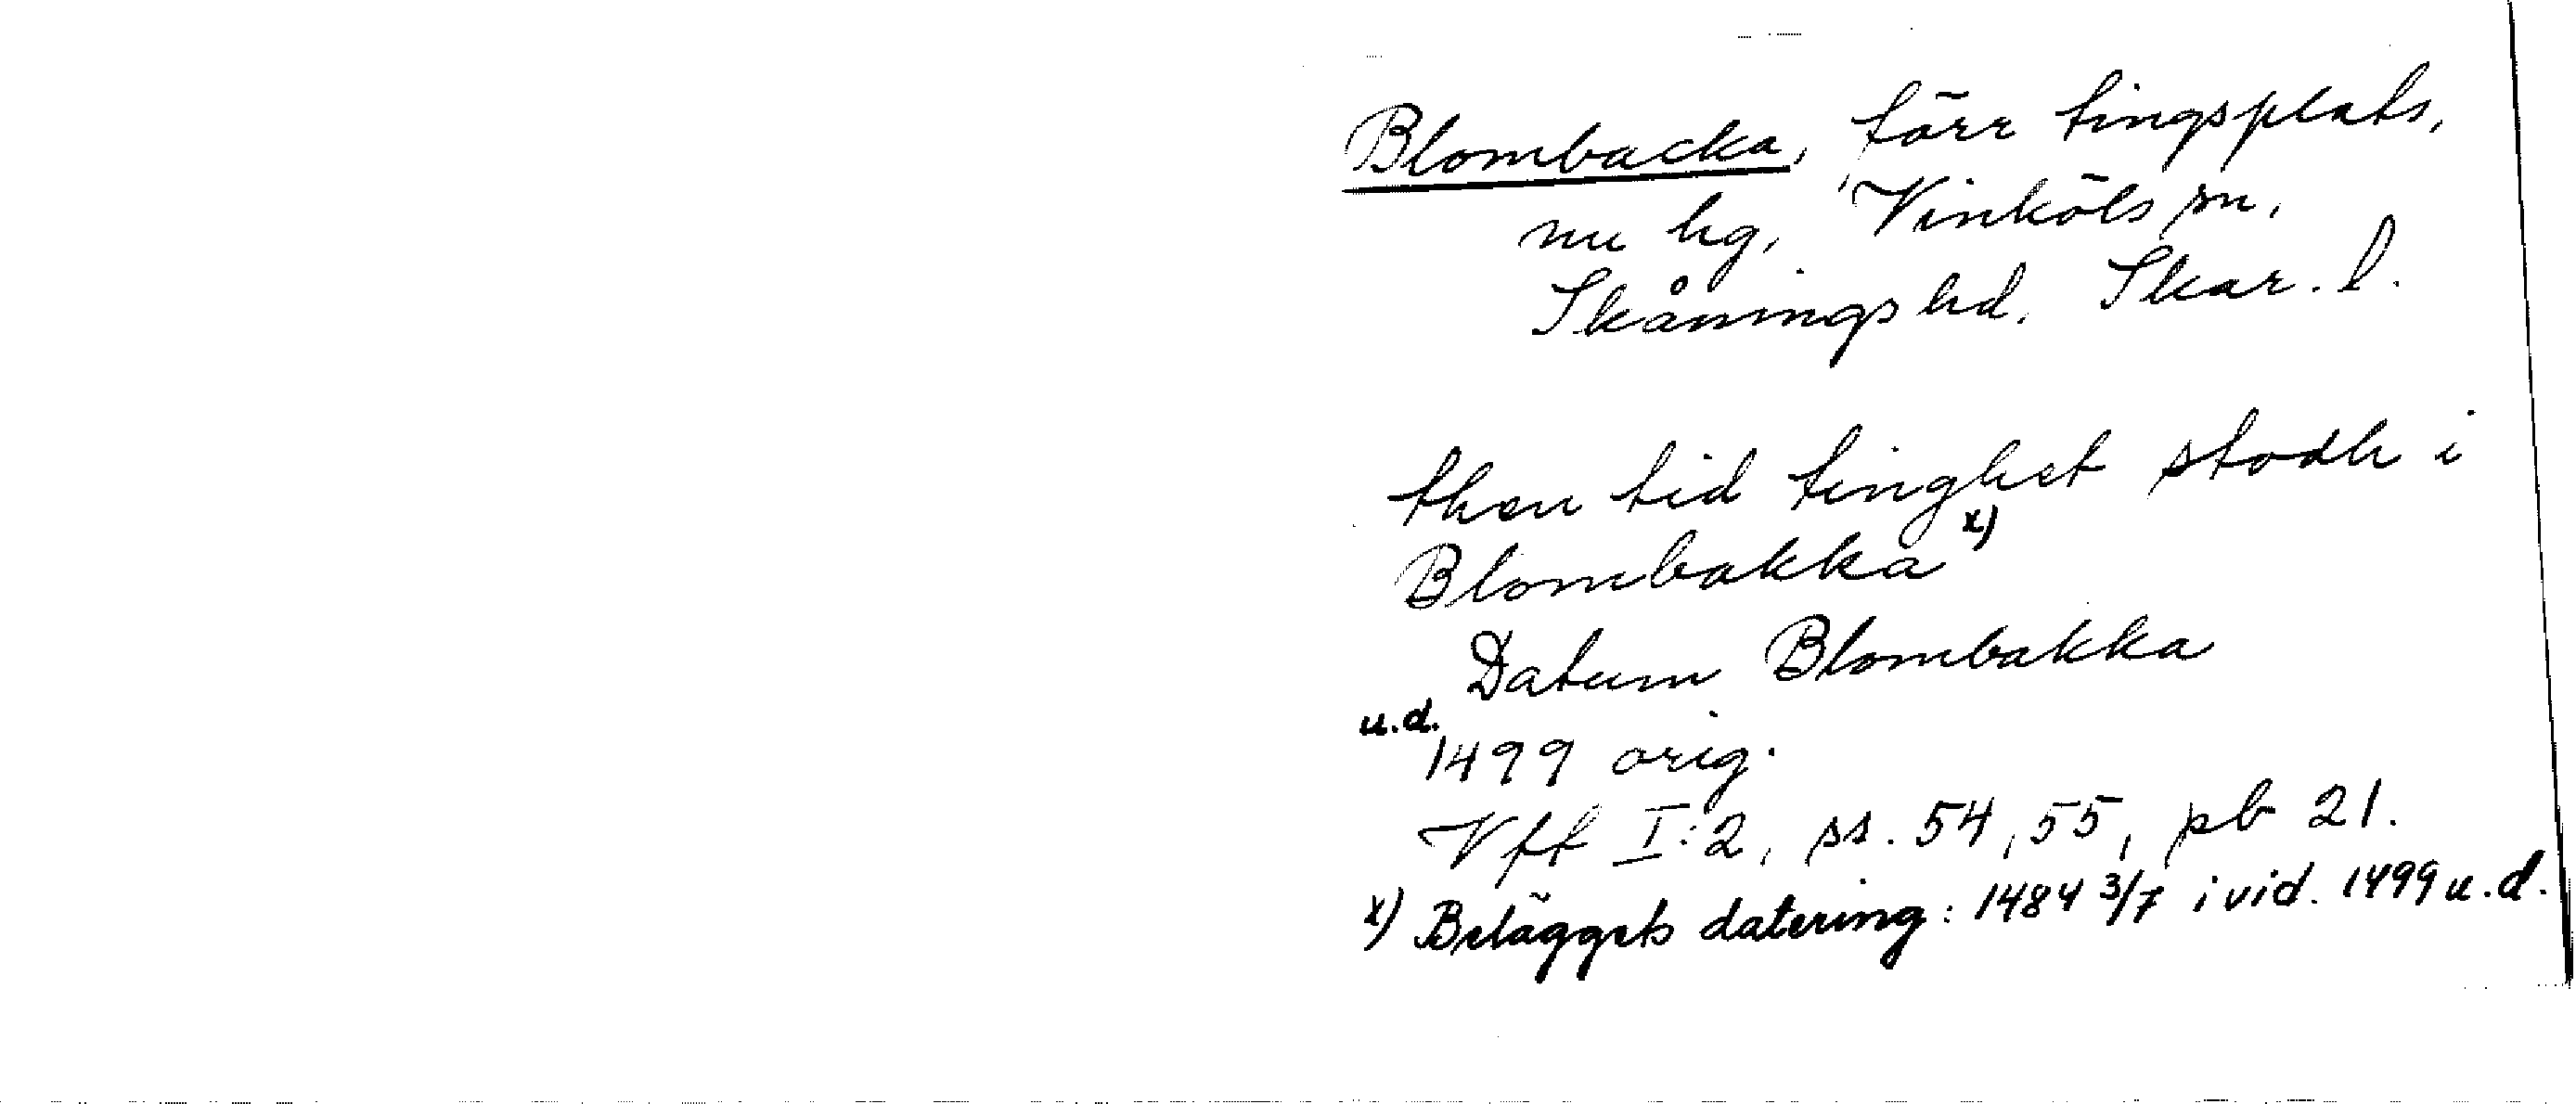 Blombacka, förr tingsplats,
nu hg, Vinköls sn,
Skånings hd, Skar. l.
then tid tinghet stodh i
Blombakka x)
Datum Blombakka
u.d.
1499 orig.
Vff I:2, ss. 54, 55, pb 21.
x) Beläggets datering: 1484 3/7 i vid. 1499 u.d.